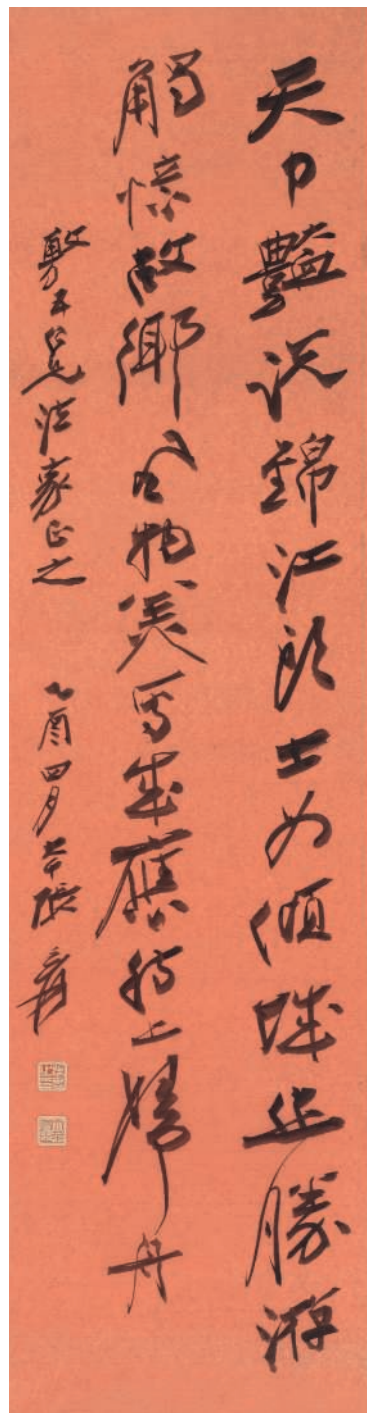 天艷說錦江頭士女傾城勝游
觸憶故鄉風物美寫成應待上歸舟
兄法家正之 乙酉四月大千張爰